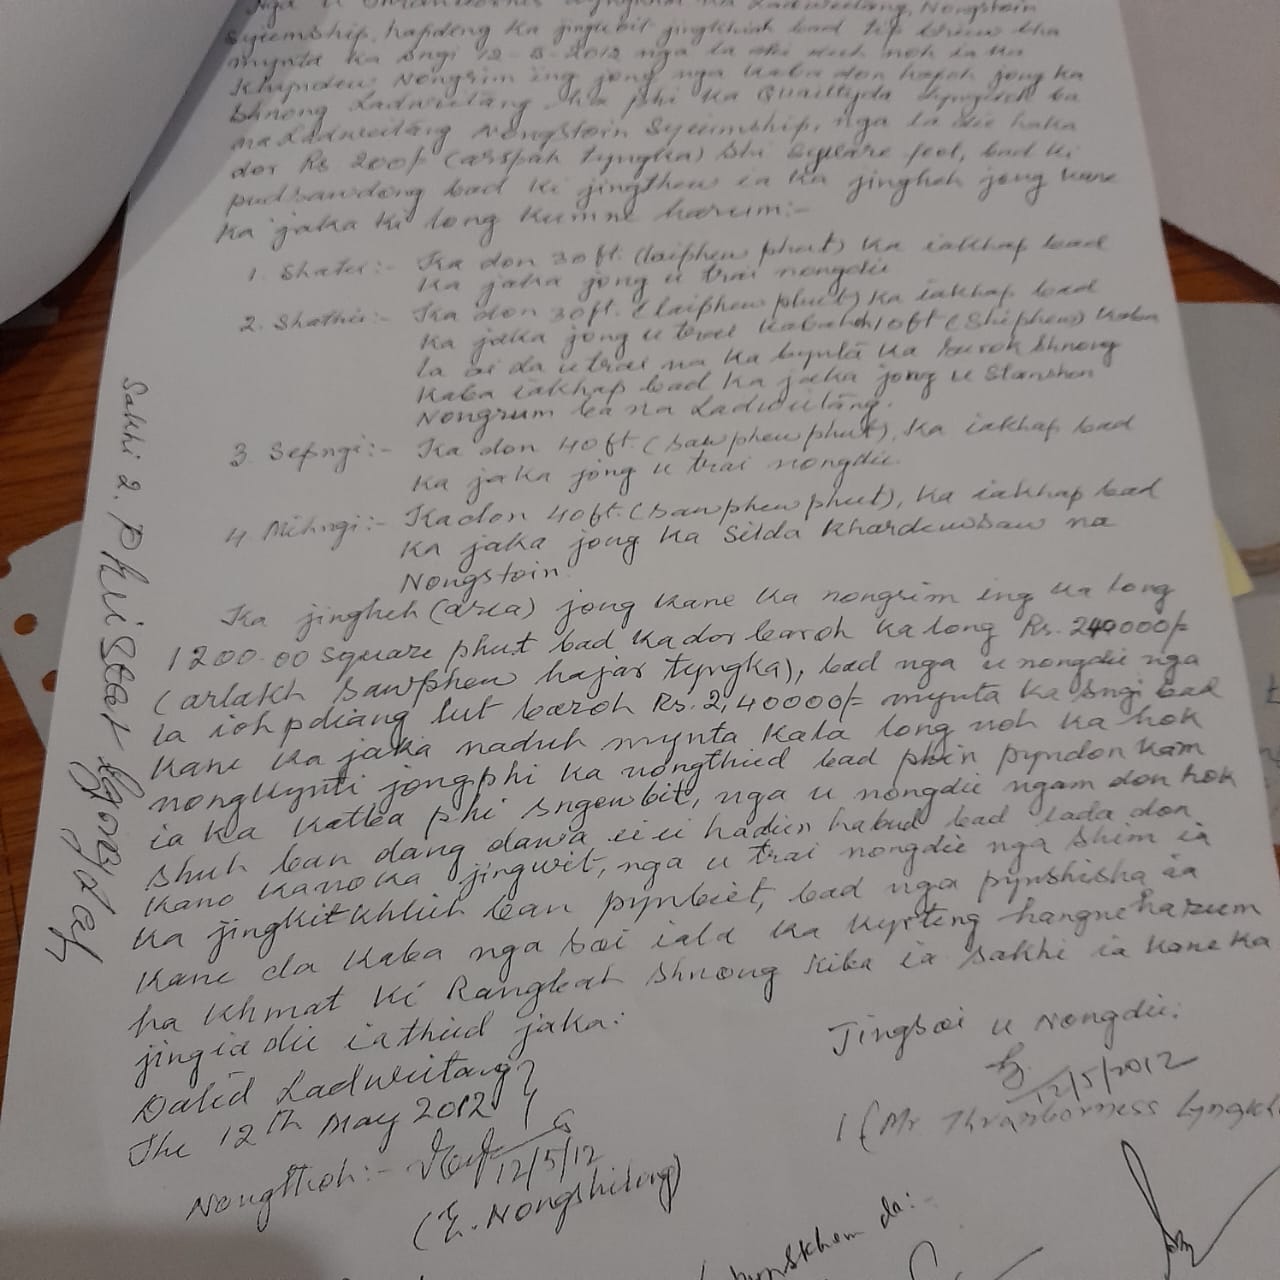 Nongstoin
Syiemship, hapdeng ka jingiabit jingkhiah bad tip briew kha
mynta ka sngi 12-5-2012 nga la die duh noh ia ka
Khapdew Nongrim ing jong nga kaba don hapoh jong ka
Shnong Ladweitang ha phi ka
na Ladweitang Nongstoin Syiemship, nga la die haka
dor Rs. 200/- (arspah tyngka) shi square feet, bad ki
pudsawdong bad ki jingthew ia ka jingheh jong kane
ka jaka ki long kumne harum:-
1. Shatei:- Ka don 30 ft. (laiphew phut) ka iakhap bad
ka jaka jong u trai nongdie
2. Shathie:- Ka don 30 ft. (laiphew phut) ka iakhap bad
ka jaka jong u 10ft (Shiphew) kaba
la ai da u trai na ka bynta ka surok Shnong
kaba iakhap bad ka jaka jong u Stanshon
Nongrum ba na Ladweitang.
3. Sepngi:- Ka don 40 ft. (sawphew phut), ka iakhap bad
ka jaka jong u trai nongdie.
4. Mihngi:- Ka don 40 ft. (sawphew phut), ka iakhap bad
ka jaka jong ka Silda Khardewsaw na
Nongstoin.
Ka jingheh (area) jong kane ka nongrim ing ka long
1200.00 square phut bad ka dor baroh ka long Rs. 240000/-
(arlakh sawphew hajar tyngka), bad nga u nongdie nga
la ioh pdiang lut baroh Rs. 2,40000/- mynta ka sngi bad
kane ka jaka naduh mynta kala long noh ka hok
nongkynti jong phi ka nongthied bad phin pyndonkam
ia ka katba phi sngewbit, nga u nongdie ngam don hok
shuh ban dang dawa ei ei hadien habud bad lada don
kano kanoka jingwit, nga u trai nongdie nga shim ia
ka jingkitkhlieh ban pynbiet, bad nga pynshisha ia
kane da kaba nga soi iald ka kyrteng hangne harum
ha khmat ki Rangbah Shnong kiba ia sakhi ia kane ka
jingia die iathied jaka:
Dated Ladweitang
The 12th May 2012
Jingsoi u Nongdie:
12/5/2012
(Mr. Thranborness
Nongthoh:- 12/5/12
(E. Nongshilong)
da:-
Sakhi 2. Phristar